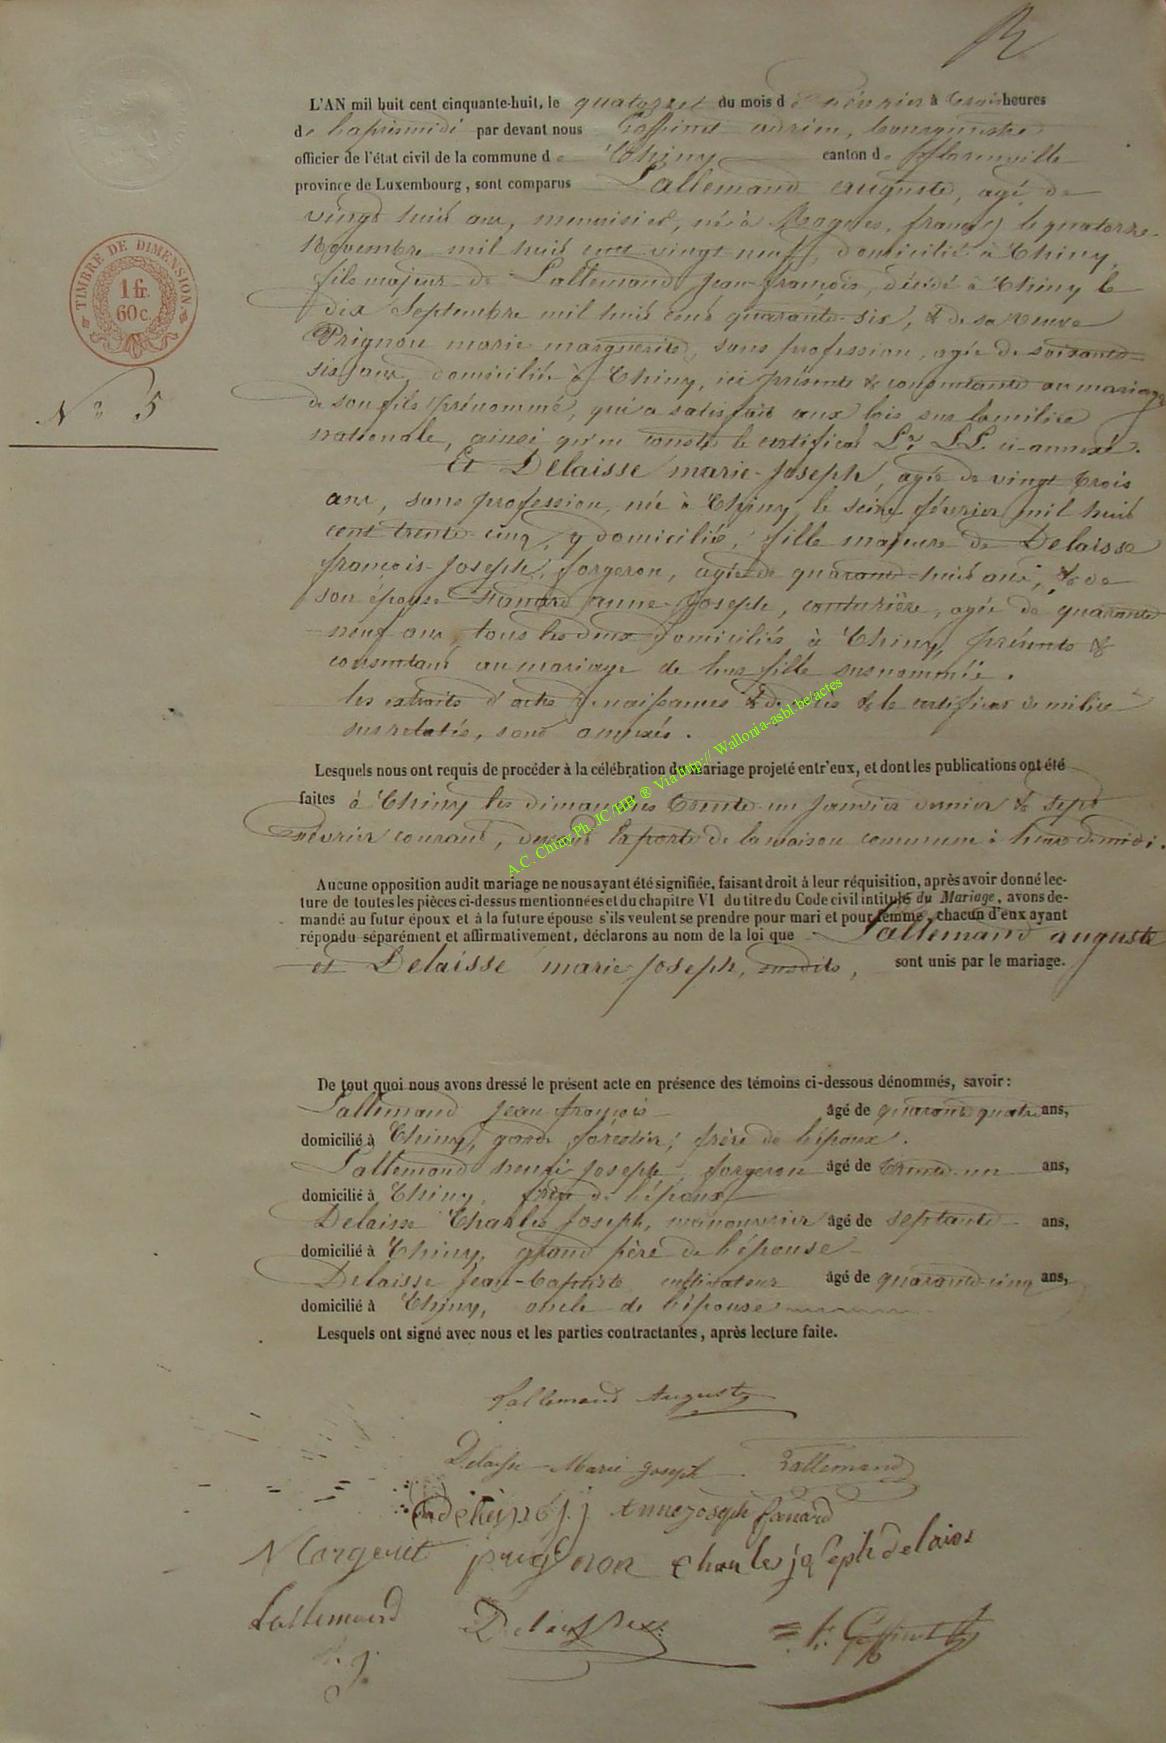 L'AN mil huit cent cinquante-huit, le quatorze du mois de février à trois heures
de l'aprèsmidi par devant nous adrien, bourgmestre
officier de l'état civil de la commune de Chiny canton de florenville
province de Luxembourg, sont comparus Lallemand auguste, agé de
vingt huit ans, menuisier, né à france, le quatorze
Novembre mil huit cent vingt neuf, domicilié à Chiny,
fils majeur de Lallemand Jean-françois, décédé à Chiny le
dix Septembre mil huit cent quarante-six, & de sa veuve
Prignon marie marguerite, sans profession, agée de soixante
six ans, domiciliée à Chiny, ici présente & consentante au mariage
de son fils prénommé, qui a satisfait aux lois sur la milice
nationale, ainsi qu'en conste le certificat Lr. LL. ci-annexé.
Et Delaisse marie-Joseph, agée de vingt trois
ans, sans profession, née à Chiny le seize février mil huit
cent trente-cinq, y domiciliée, fille majeure de Delaisse
françois-Joseph, forgeron, agé de quarante-huit ans, & de
son épouse anne-Joseph, couturière, agée de quarante
neuf ans, tous les deux domiciliés à Chiny, présents &
consentant au mariage de leur fille susnommée.
les extraits d'actes de naissances & de décès & le certificat de milice
susrelatés, sont annexés.
Lesquels nous ont requis de procéder à la célébration du mariage projeté entr'eux, et dont les publications ont été
faites à Chiny les dimanches trente-un Janvier dernier & sept
février courant, devant la porte de la maison commune à heure de midi.
Aucune opposition audit mariage ne nous ayant été signifiée, faisant droit à leur réquisition, après avoir donné lec-
ture de toutes les pièces ci-dessus mentionnées et du chapitre VI du titre du Code civil intitulé du Mariage, avons de-
mandé au futur époux et à la future épouse s'ils veulent se prendre pour mari et pour femme, chacun d'eux ayant
répondu séparément et affirmativement, déclarons au nom de la loi que Lallemand auguste
et Delaisse marie-Joseph, susdits, sont unis par le mariage.
De tout quoi nous avons dressé le présent acte en présence des témoins ci-dessous dénommés, savoir:
Lallemand Jean-françois âgé de quarante quatre ans,
domicilié à Chiny, garde forestier, frère de l'époux.
Lallemand henri Joseph, forgeron âgé de trente-un ans,
domicilié à Chiny, frère de l'époux
Delaisse Charles Joseph, manouvrier âgé de septante ans,
domicilié à Chiny, grand père de l'épouse
Delaisse Jean-baptiste cultivateur âgé de quarante-cinq ans,
domicilié à Chiny, oncle de l'épouse
Lesquels ont signé avec nous et les parties contractantes, après lecture faite.
Lallemand Auguste
Delaisse Marie Joseph Lallemand
Anne Joseph fanard
Margerit prignon Charles joseph delaisse
Lallemand
h. J.
TIMBRE DE DIMENSION
1 fr.
60 c.
No 5
A.C. Chiny Ph. JC/HB ® Via http:// Wallonia-asbl.be/actes